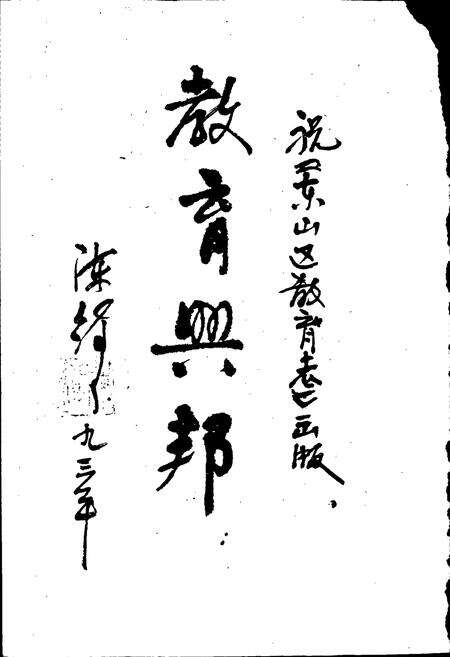 祝《东山区教育志》出版
教育興邦
陈
九三年